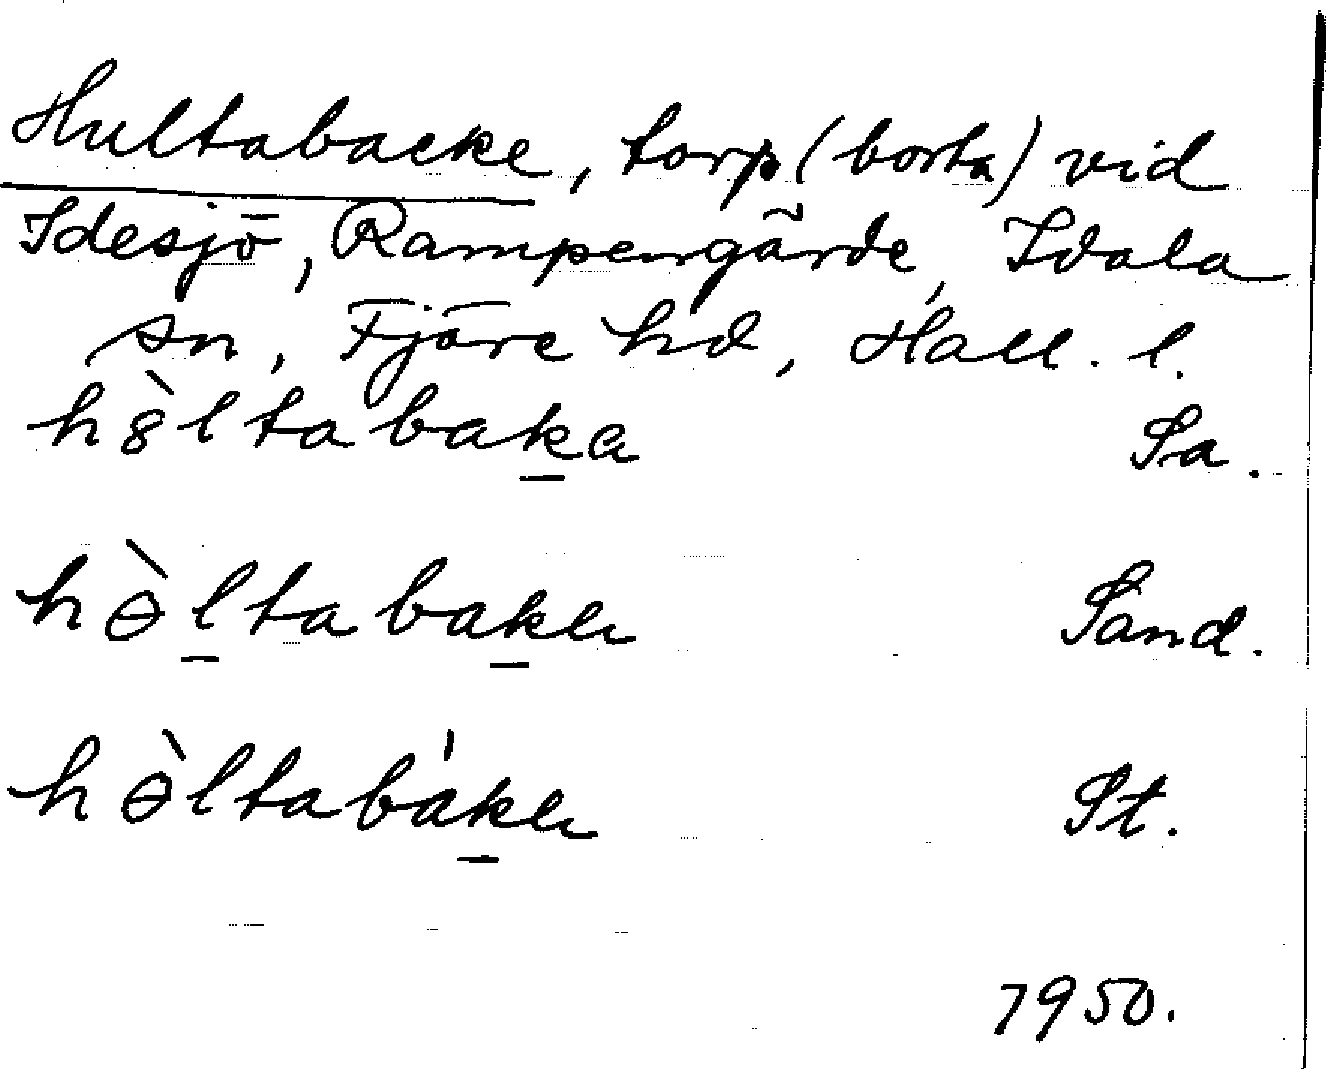 Hultabacke, torp (borta) vid
Idesjö, Rampengärde, Idala
sn, Fjäre hd, Hall. l.
hȍltabaka Sa.
hɵ̀ltabakɐ Sand.
hɵ̀ltabákɐ St.
1950.